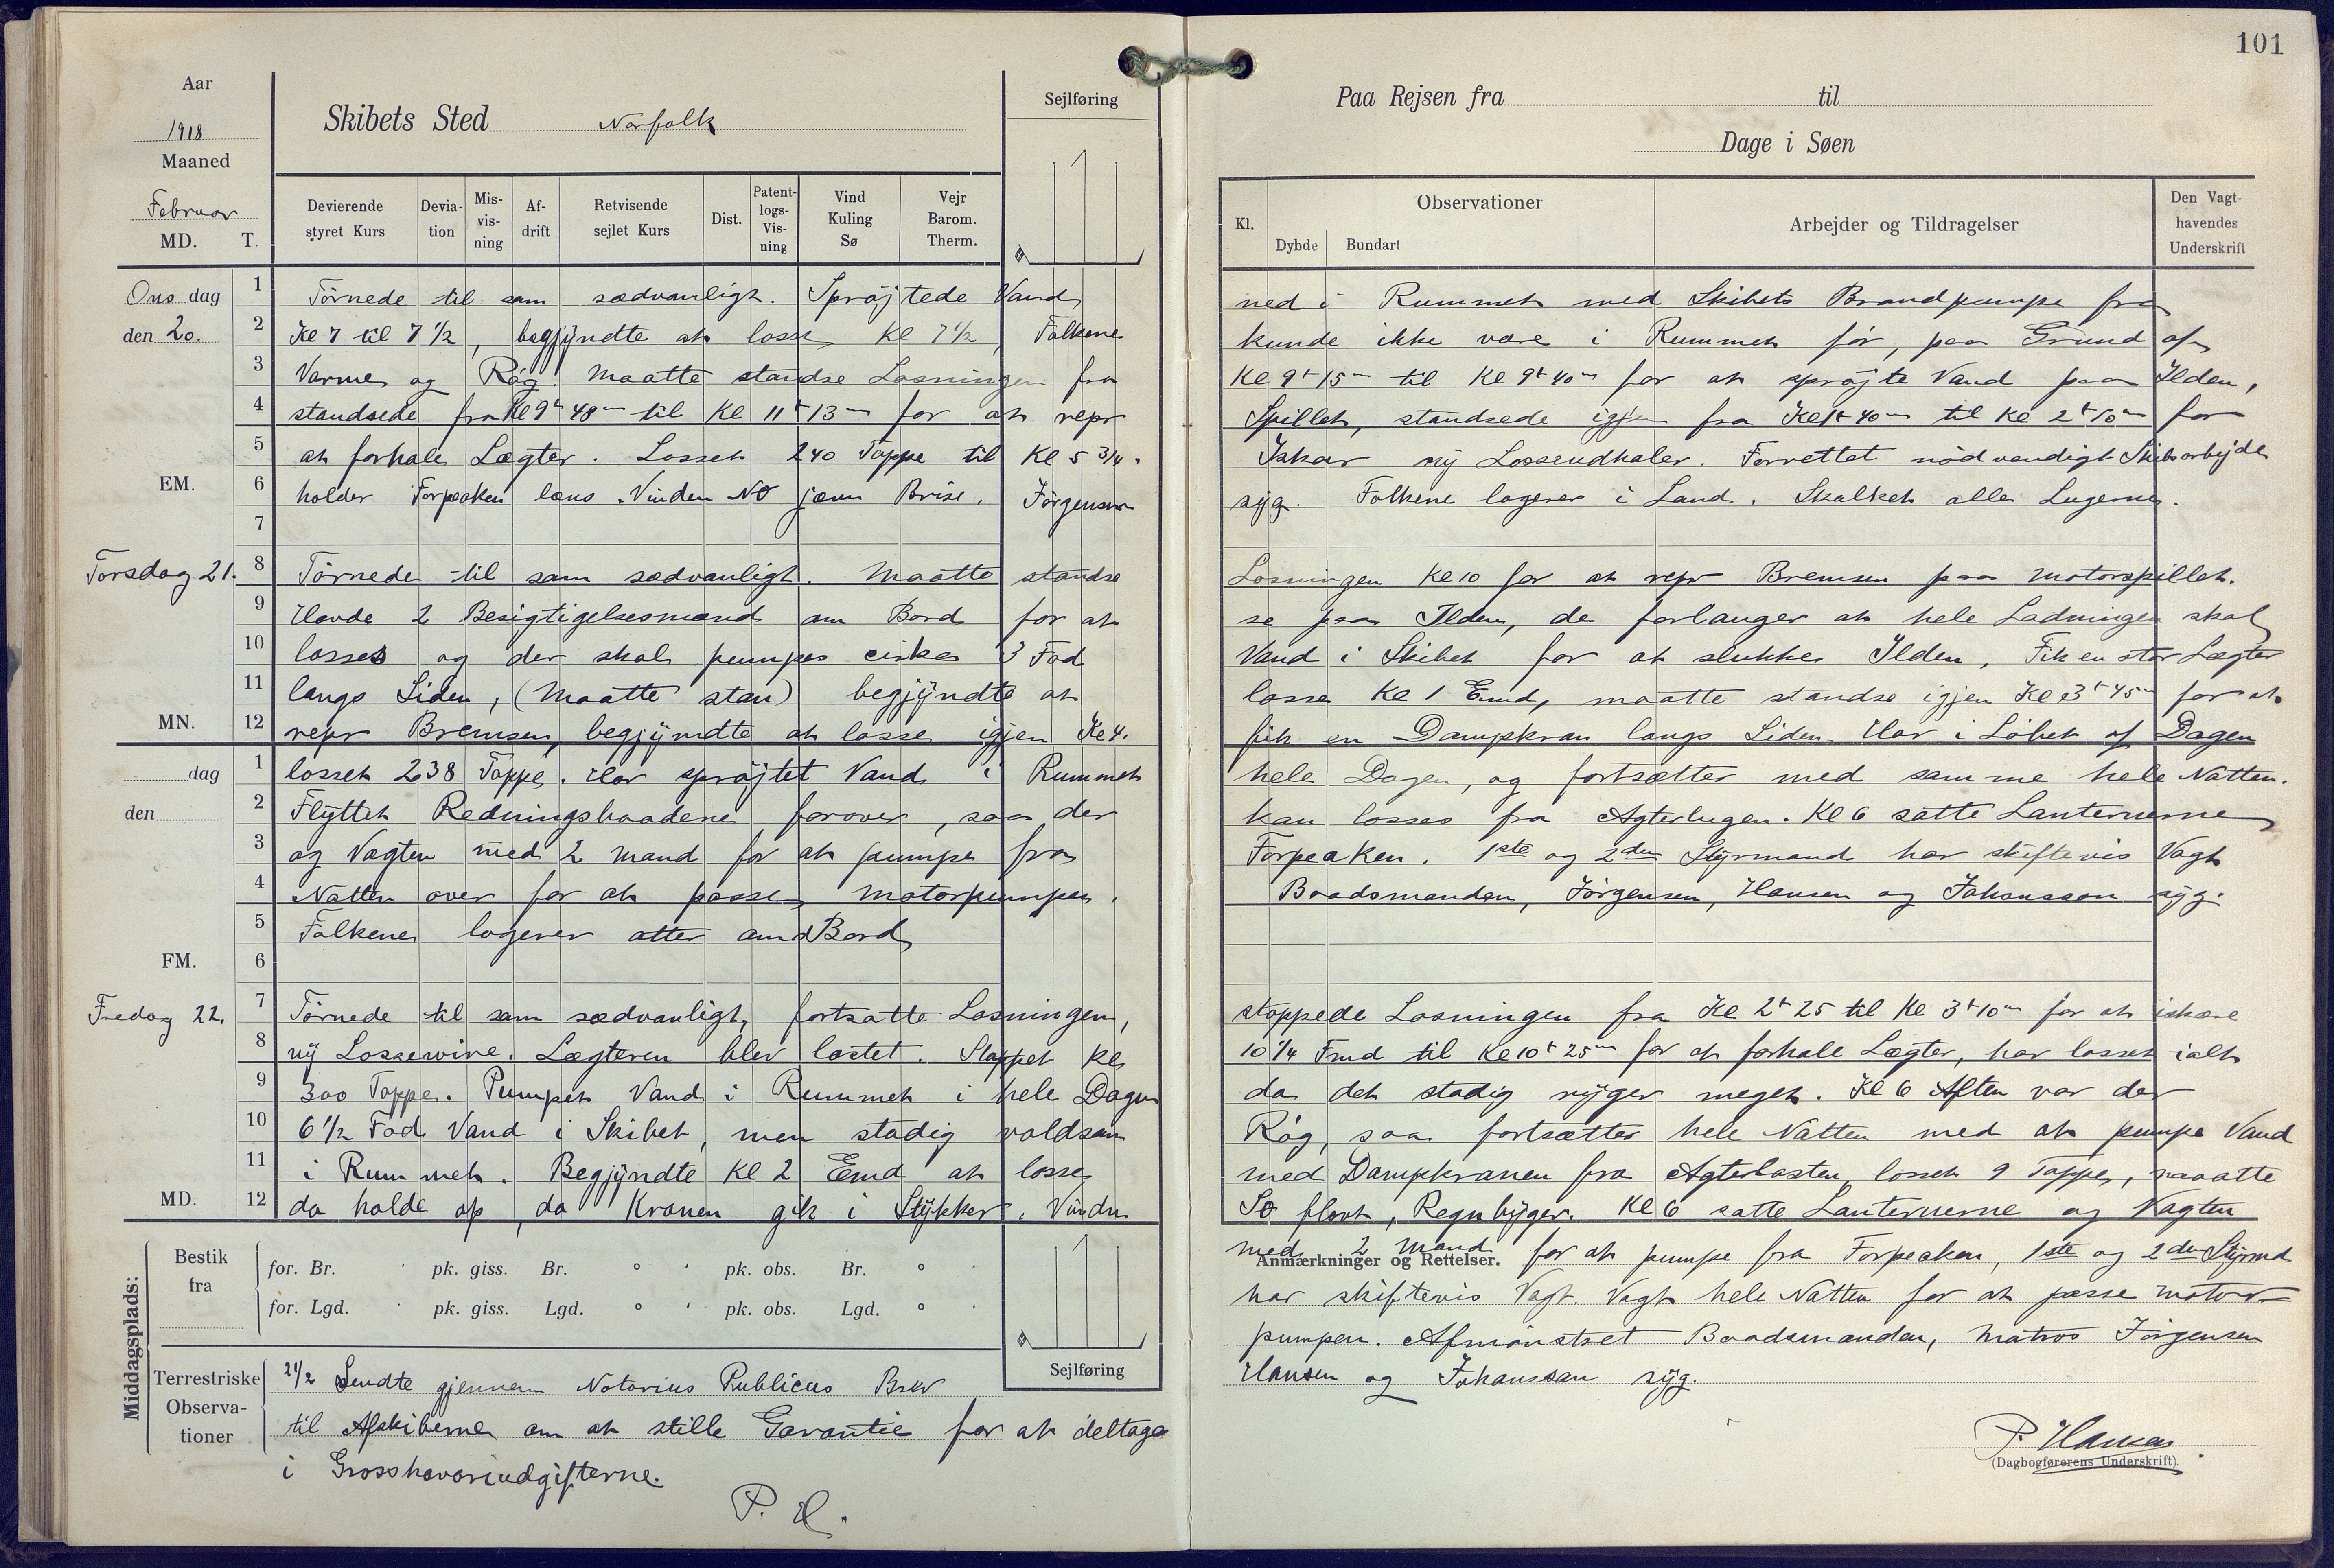 101
Aar
1918
Maaned
Februar
MD. T.
Skibets Sted Norfolk
Sejlføring
Paa Rejsen fra til
Dage i Søen
Devierende styret Kurs
Devia-tion
Mis-vis-ning
Af-drift
Retvisende sejlet Kurs
Dist.
Patent-logs-Vis-ning
Vind Kuling Sø
Vejr Barom. Therm.
Kl.
Observationer
Dybde Bundart
Arbejder og Tildragelser
Den Vagt-havendes Underskrift
Ons dag 1 Törnede til som sædvanligt. Spröjtede Vand ned i Rummet med Skibets Brandpumpe fra
den 20. 2 Kl 7 til 7 1/2, begjyndte at losse Kl 7 1/2, Folkene kunde ikke være i Rummet för, paa Grund af
3 Varme og Røg. Maatte standse Losningen fra Kl 9t 15m til Kl 9t 40m for at spröjte Vand paa Ilden,
4 standsede fra Kl 9t 48m til Kl 11t 13m for at repr Spillet, standsede igjen fra Kl 1t 40m til Kl 2t 10m for
5 at forhale Lægter. Losset 240 Toppe til Kl 5 3/4. Iskar ny Lossendhaler. Forrettet nödvendigt Skibsarbejde
EM. 6 holder Forpeaken læns. Vinden NO jævn Brise. Jörgensen syg. Folkene logerer i Land. Skalket alle Lugerne.
7
Torsdag 21. 8 Törnede til som sædvanligt. Maatte standse Losningen Kl 10 for at repr Bremsen paa Motorspillet.
9 Havde 2 Besigtigelsesmænd om Bord for at se paa Ilden, de forlanger at hele Ladningen skal
10 losses og der skal pumpes cirka 3 Fod Vand i Skibet for at slukke Ilden, Fik en stor Lægter
11 langs Siden, (Maatte stan) begjyndte at losse Kl 1 Emd, maatte standse igjen Kl 3t 45m for at
MN. 12 repr Bremsen, begjyndte at losse igjen Kl 4. fik en Dampkran langs Siden. Har i Löbet af Dagen
dag 1 losset 238 Toppe. Har spröjtet Vand i Rummet hele Dagen, og fortsætter med samme hele Natten.
den 2 Flyttet Redningsbaadene forover, saa der kan losses fra Agterlugen. Kl 6 satte Lanternerne
3 og Vagten med 2 Mand for at pumpe fra Forpeaken. 1ste og 2den Styrmand har skiftevis Vagt
4 Natten over for at passe Motorpumpen. Baadsmanden, Jörgensen, Hansen og Johansson syg.
5 Folkene logerer atter om Bord
FM. 6
Fredag 22. 7 Törnede til som sædvanligt, fortsatte Losningen, stoppede Losningen fra Kl 2t 25 til Kl 3t 10m for at iskære
8 ny Lossewire. Lægteren blev lastet. Stoppet Kl 10 1/4 Fmd til Kl 10t 25m for at forhale Lægter, har losset ialt
9 300 Toppe. Pumpet Vand i Rummet i hele Dagen da det stadig ryger meget. Kl 6 Aften var der
10 6 1/2 Fod Vand i Skibet, men stadig voldsom Røg, saa fortsætter hele Natten med at pumpe Vand
11 i Rummet. Begjyndte Kl 2 Emd at losse med Dampkranen fra Agterlasten, losset 9 Toppe, maatte
MD. 12 da holde op, da Kranen gik i Stykker. Vinden SO flovt, Regnbyger. Kl 6 satte Lanternerne og Vagten
Anmærkninger og Rettelser.
med 2 Mand for at pumpe fra Forpeaken, 1ste og 2den Styrmd
har skiftevis Vagt. Vagt hele Natten for at passe Motor-
pumpen. Afmönstret Baadsmanden, Matros Jörgensen
Hansen og Johansson syg.
P. Hansen
(Dagbogførerens Underskrift).
Middagsplads:
Bestik fra
for. Br. ' pk. giss. Br. ° ' pk. obs. Br. ° '
for. Lgd. ' pk. giss. Lgd. ° ' pk. obs. Lgd. ° '
Sejlføring
Terrestriske Observa-tioner
21/2 Sendte gjennem Notarius Publicus Brev
til Afskiberne om at stille Garantie for at deltage
i Grosshavariudgifterne.
P. H.